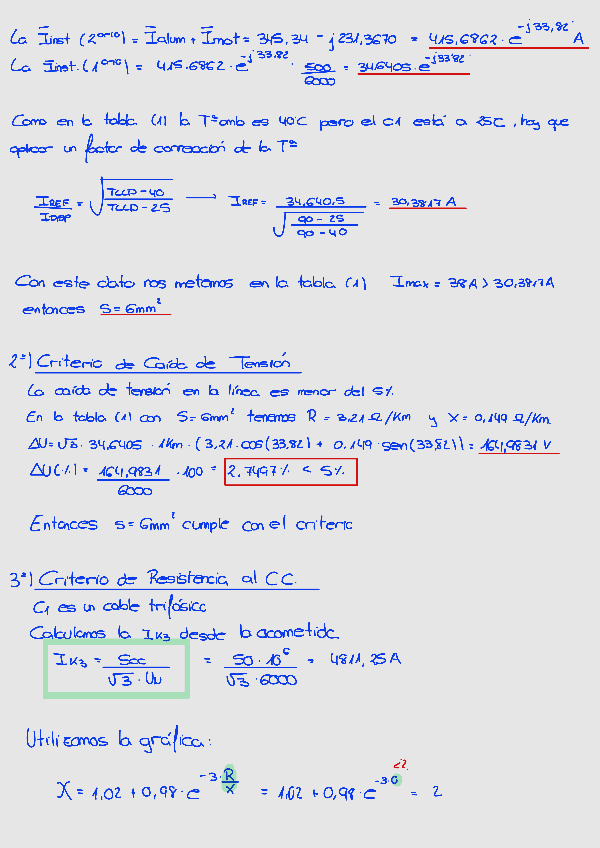 La Iinst (2ario) = Ialum + Imot = 345,34 - j231,3670 = 415,6862 · e^-j33,82° A
La Iinst. (1ario) = 415,6862 · e^-j33,82 · 500/6000 = 34,6405 · e^-j33,82
Como en la tabla (1) la Tªamb es 40°C pero el C1 está a 25°C, hay que
aplicar un factor de corrección de la Tª
IREF/IDISP = √(TLCD-40/TLCD-25) → IREF = 34,640,5/√(90-25/90-40) = 30,3817 A
Con este dato nos metemos en la tabla (1) Imax = 38A > 30,3817A
entonces S = 6mm²
2º) Criterio de Caída de Tensión
La caída de tensión en la línea es menor del 5%
En la tabla (1) con S = 6mm² tenemos R = 3,21 Ω/Km y X = 0,149 Ω/Km
ΔU = √3 · 34,6405 · 1Km · (3,21 · cos(33,82) + 0,149 · sen(33,82)) = 164,9831 V
ΔU(%) = 164,9831/6000 · 100 = 2,7497% < 5%
Entonces S = 6mm² cumple con el criterio
3º) Criterio de Resistencia al CC.
C1 es un cable trifásico
Calculamos la IK3 desde la acometida
IK3 = Scc/√3 · Un = 50 · 10^6/√3 · 6000 = 4811,25 A
Utilizamos la gráfica:
X = 1,02 + 0,98 · e^-3·R/X = 1,02 + 0,98 · e^-3·0 = 2
¿?